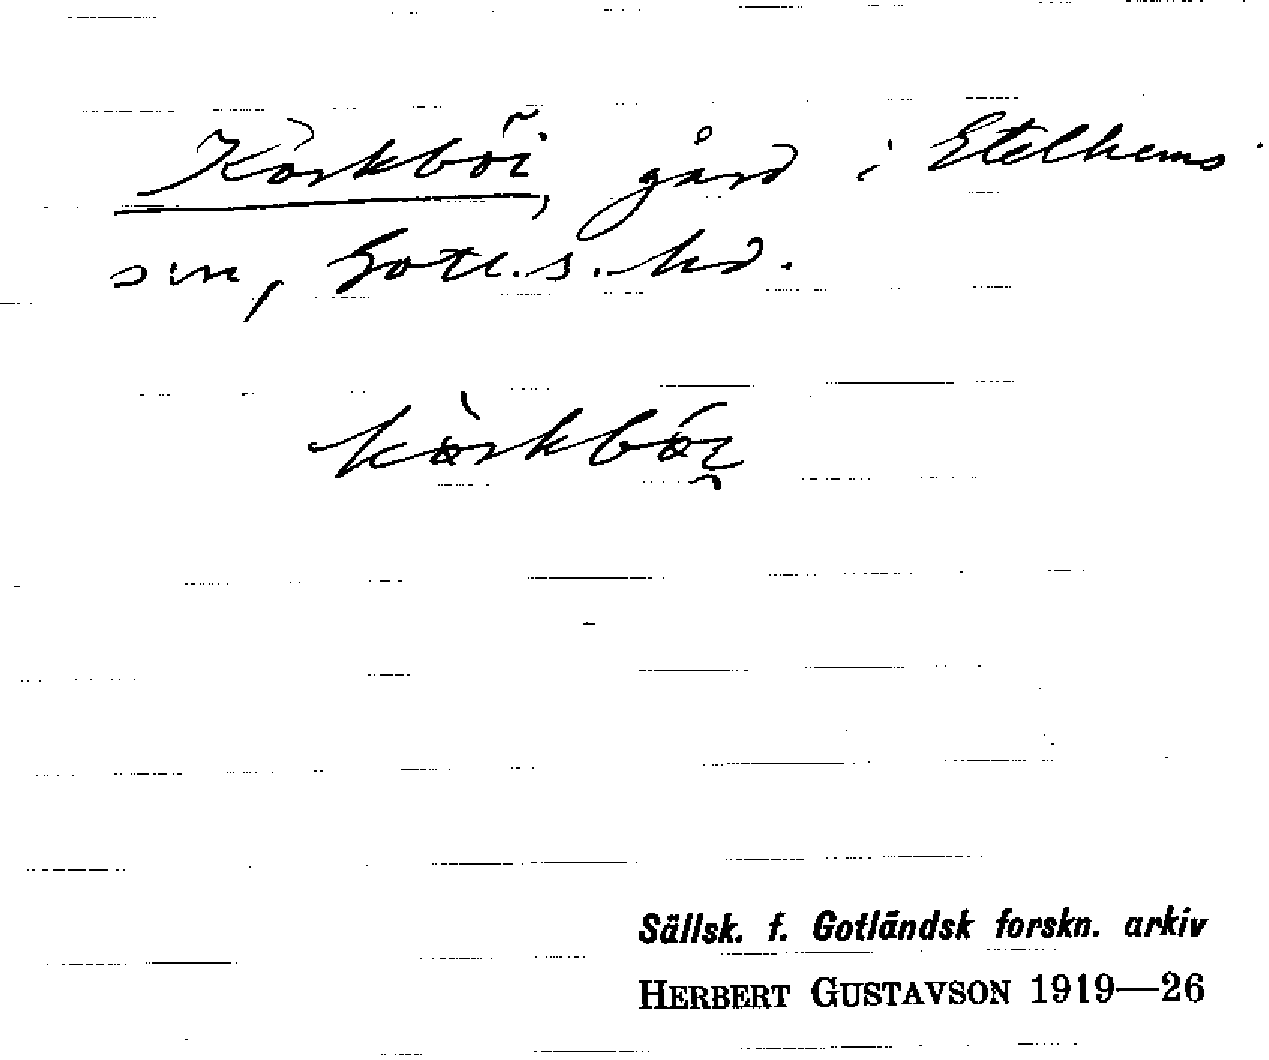 Körkböi, gård i Etelhems
sn, Gotl. s. hd.
körkböi
Sällsk. f. Gotländsk forskn. arkiv
HERBERT GUSTAVSON 1919—26